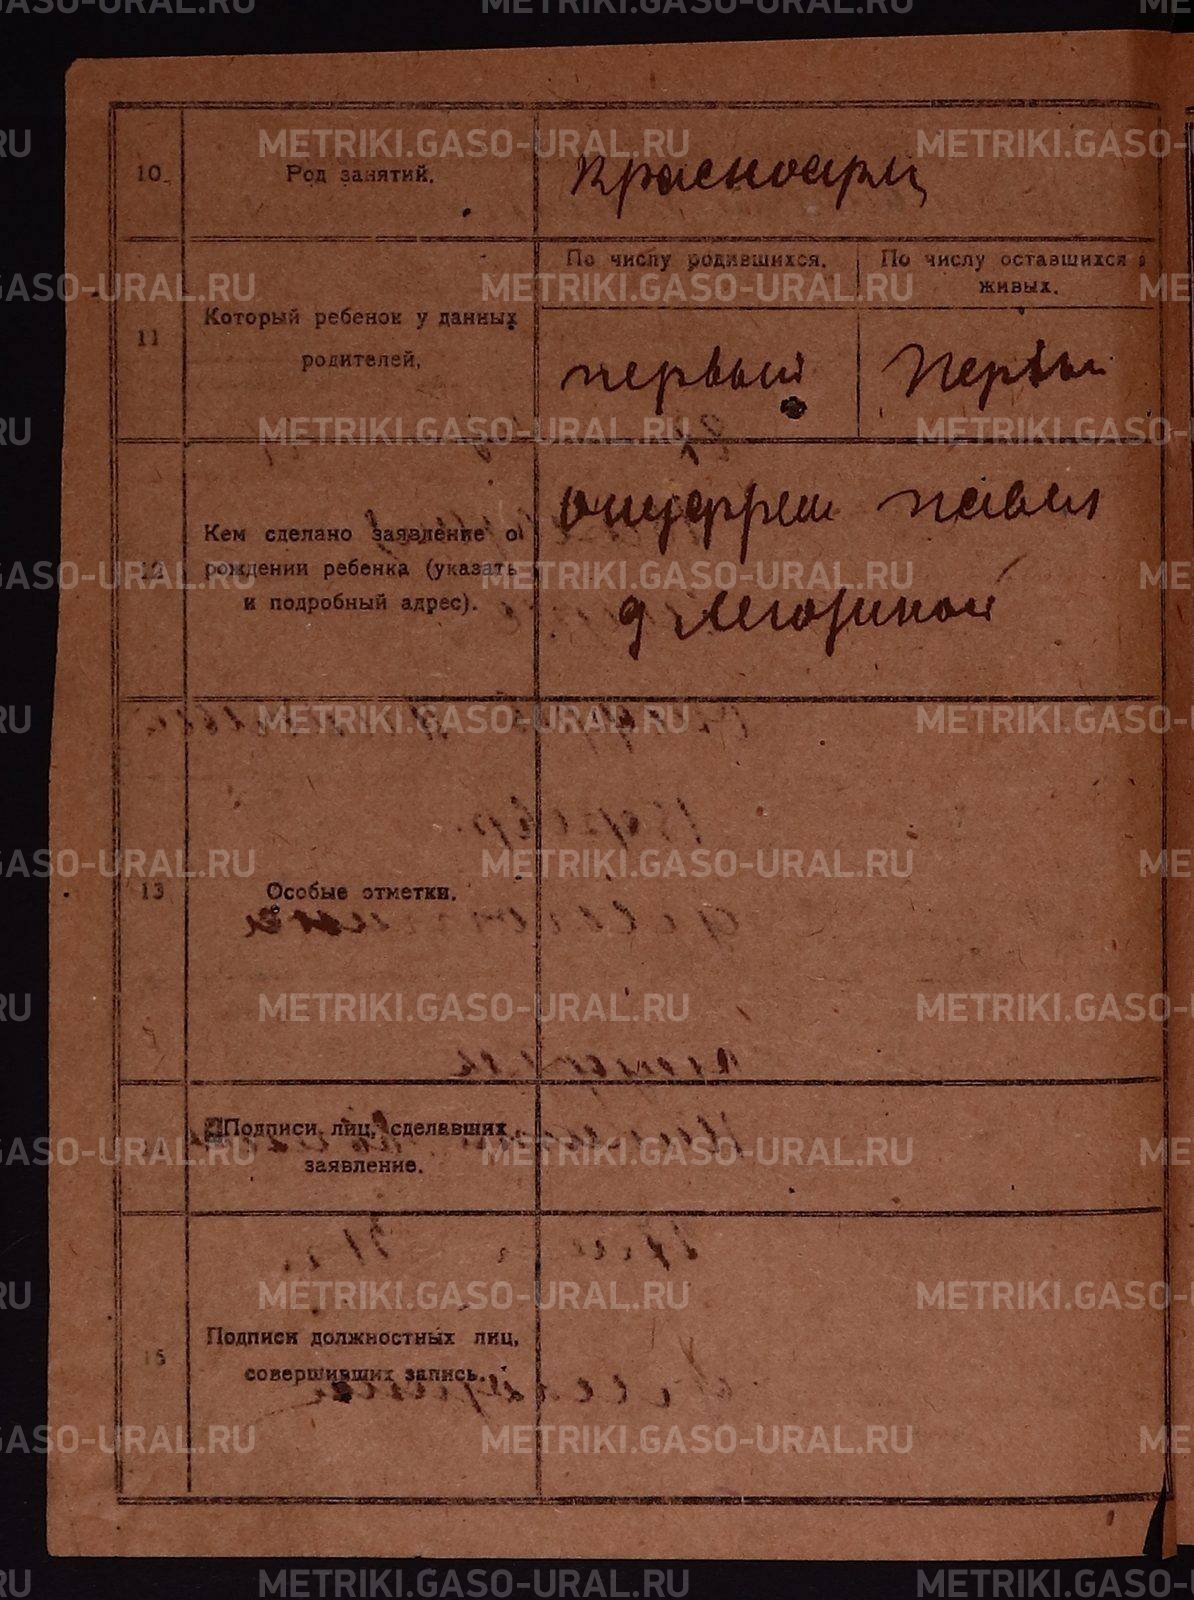 10.
Род занятий.
красноарм
11
Который ребенок у данных
родителей.
По числу родившихся.
По числу оставшихся в
живых.
первый
Первы
12
Кем сделано заявление о
рождении ребенка (указать
и подробный адрес).
павел
д
13
Особые отметки.
Подписи лиц, сделавших
заявление.
15
Подписи должностных лиц,
совершивших запись.
METRIKI.GASO-URAL.RU